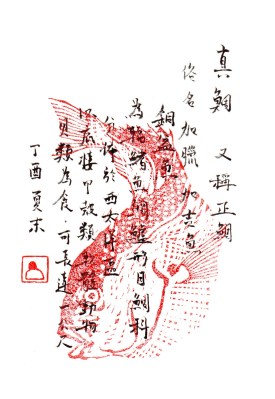 真鯛 又稱正鯛
俗名加臘 加魚
銅盆魚
為輻鰭魚綱鱸形目鯛科
分佈於西太平洋
以底棲甲殼類 軟體動物
貝類為食,可長達一
丁酉夏末